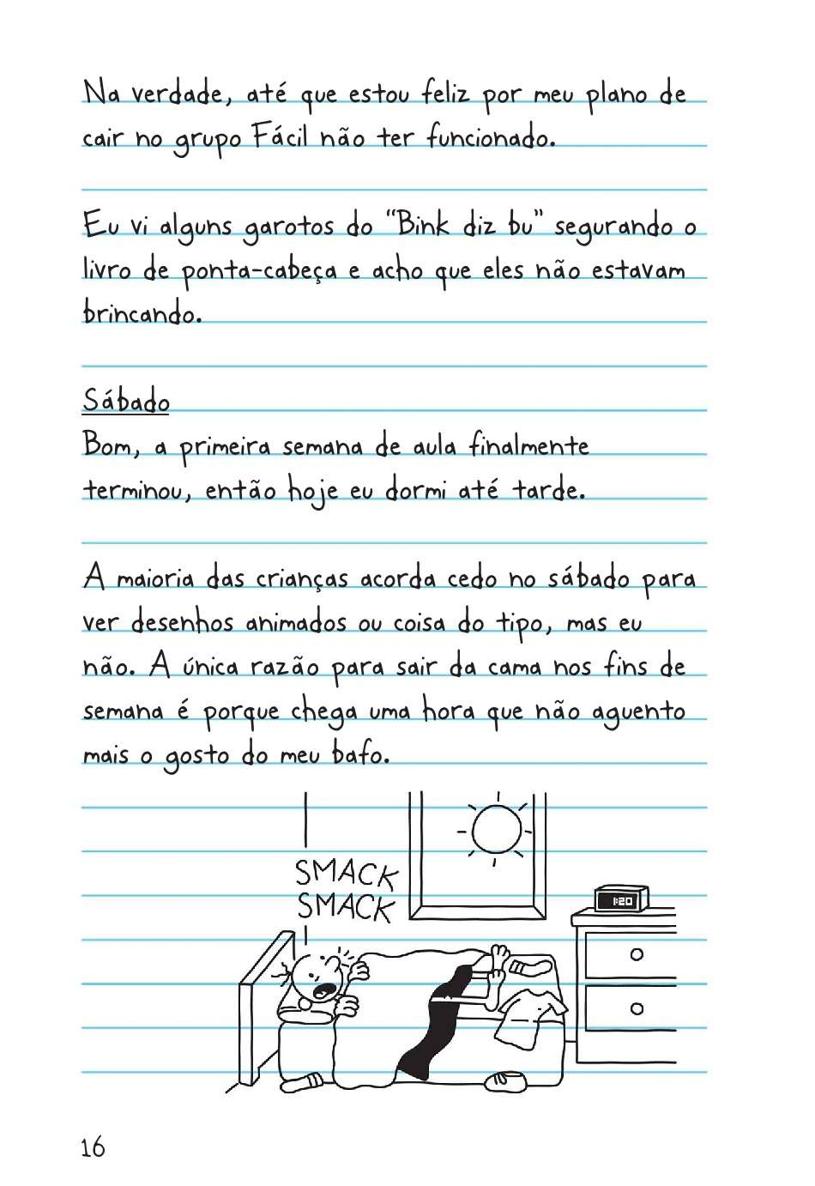 Na verdade, até que estou feliz por meu plano de
cair no grupo Fácil não ter funcionado.
Eu vi alguns garotos do "Bink diz bu" segurando o
livro de ponta-cabeça e acho que eles não estavam
brincando.
Sábado
Bom, a primeira semana de aula finalmente
terminou, então hoje eu dormi até tarde.
A maioria das crianças acorda cedo no sábado para
ver desenhos animados ou coisa do tipo, mas eu
não. A única razão para sair da cama nos fins de
semana é porque chega uma hora que não aguento
mais o gosto do meu bafo.
SMACK
SMACK
1:20
16